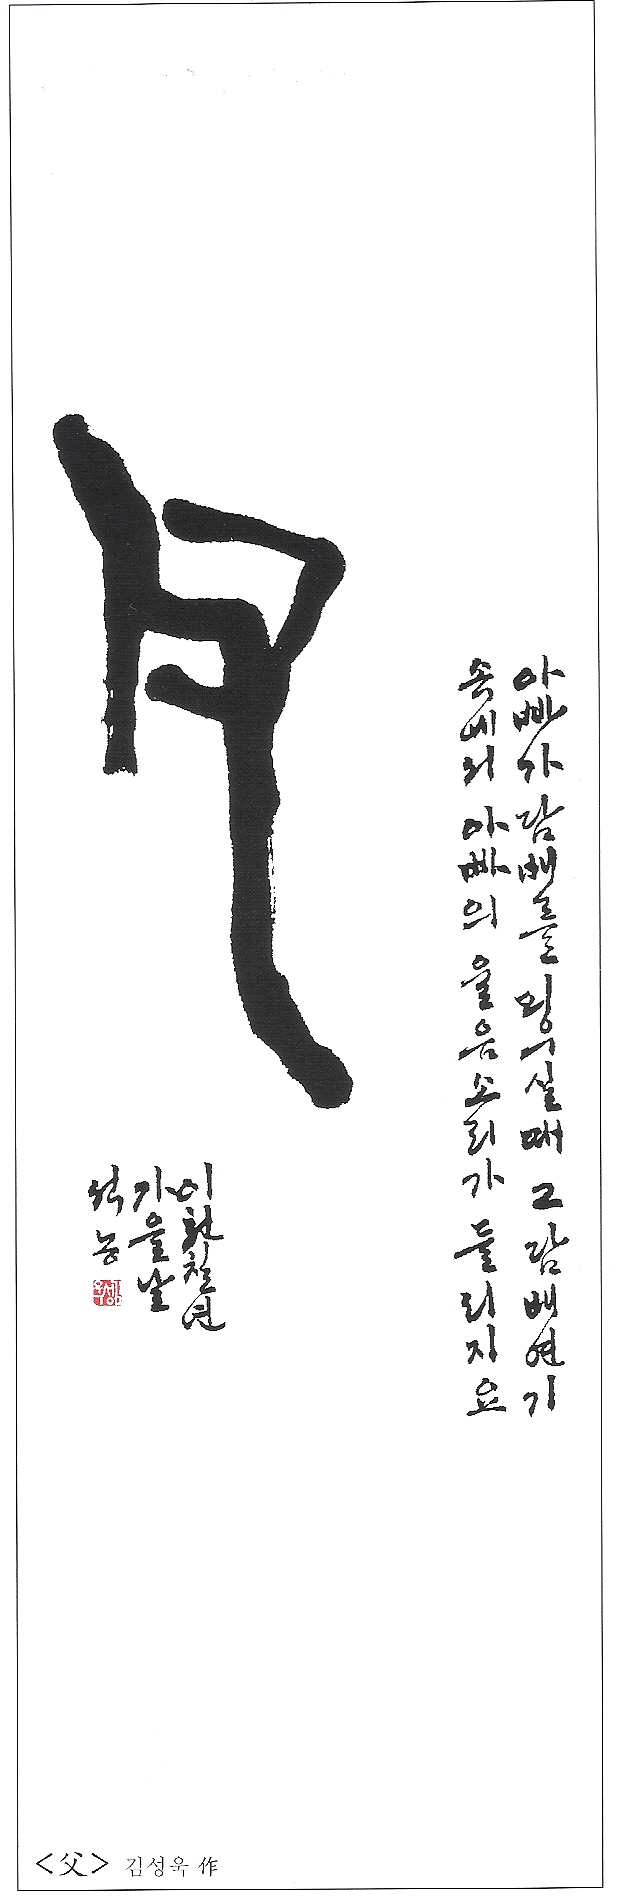 아빠가 담배를 피우실때 그 담배연기
속에서 아빠의 울음소리가 들리지요
父
이천칠년
가을날
석농
<父> 김성욱 作